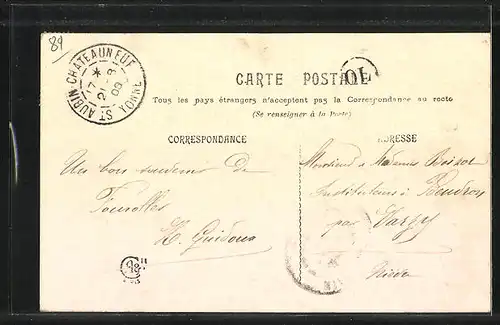 89
ST AUBIN-CHATEAUNEUF
17 *
21 -8
09
YONNE
CARTE POSTALE
OL
Tous les pays étrangers n'acceptent pas la Correspondance au recto
(Se renseigner à la Poste)
CORRESPONDANCE
ADRESSE
Un bon souvenir de
Fourolles
Monsieur & Madame
Instituteurs à
par Varzy
Nièvre